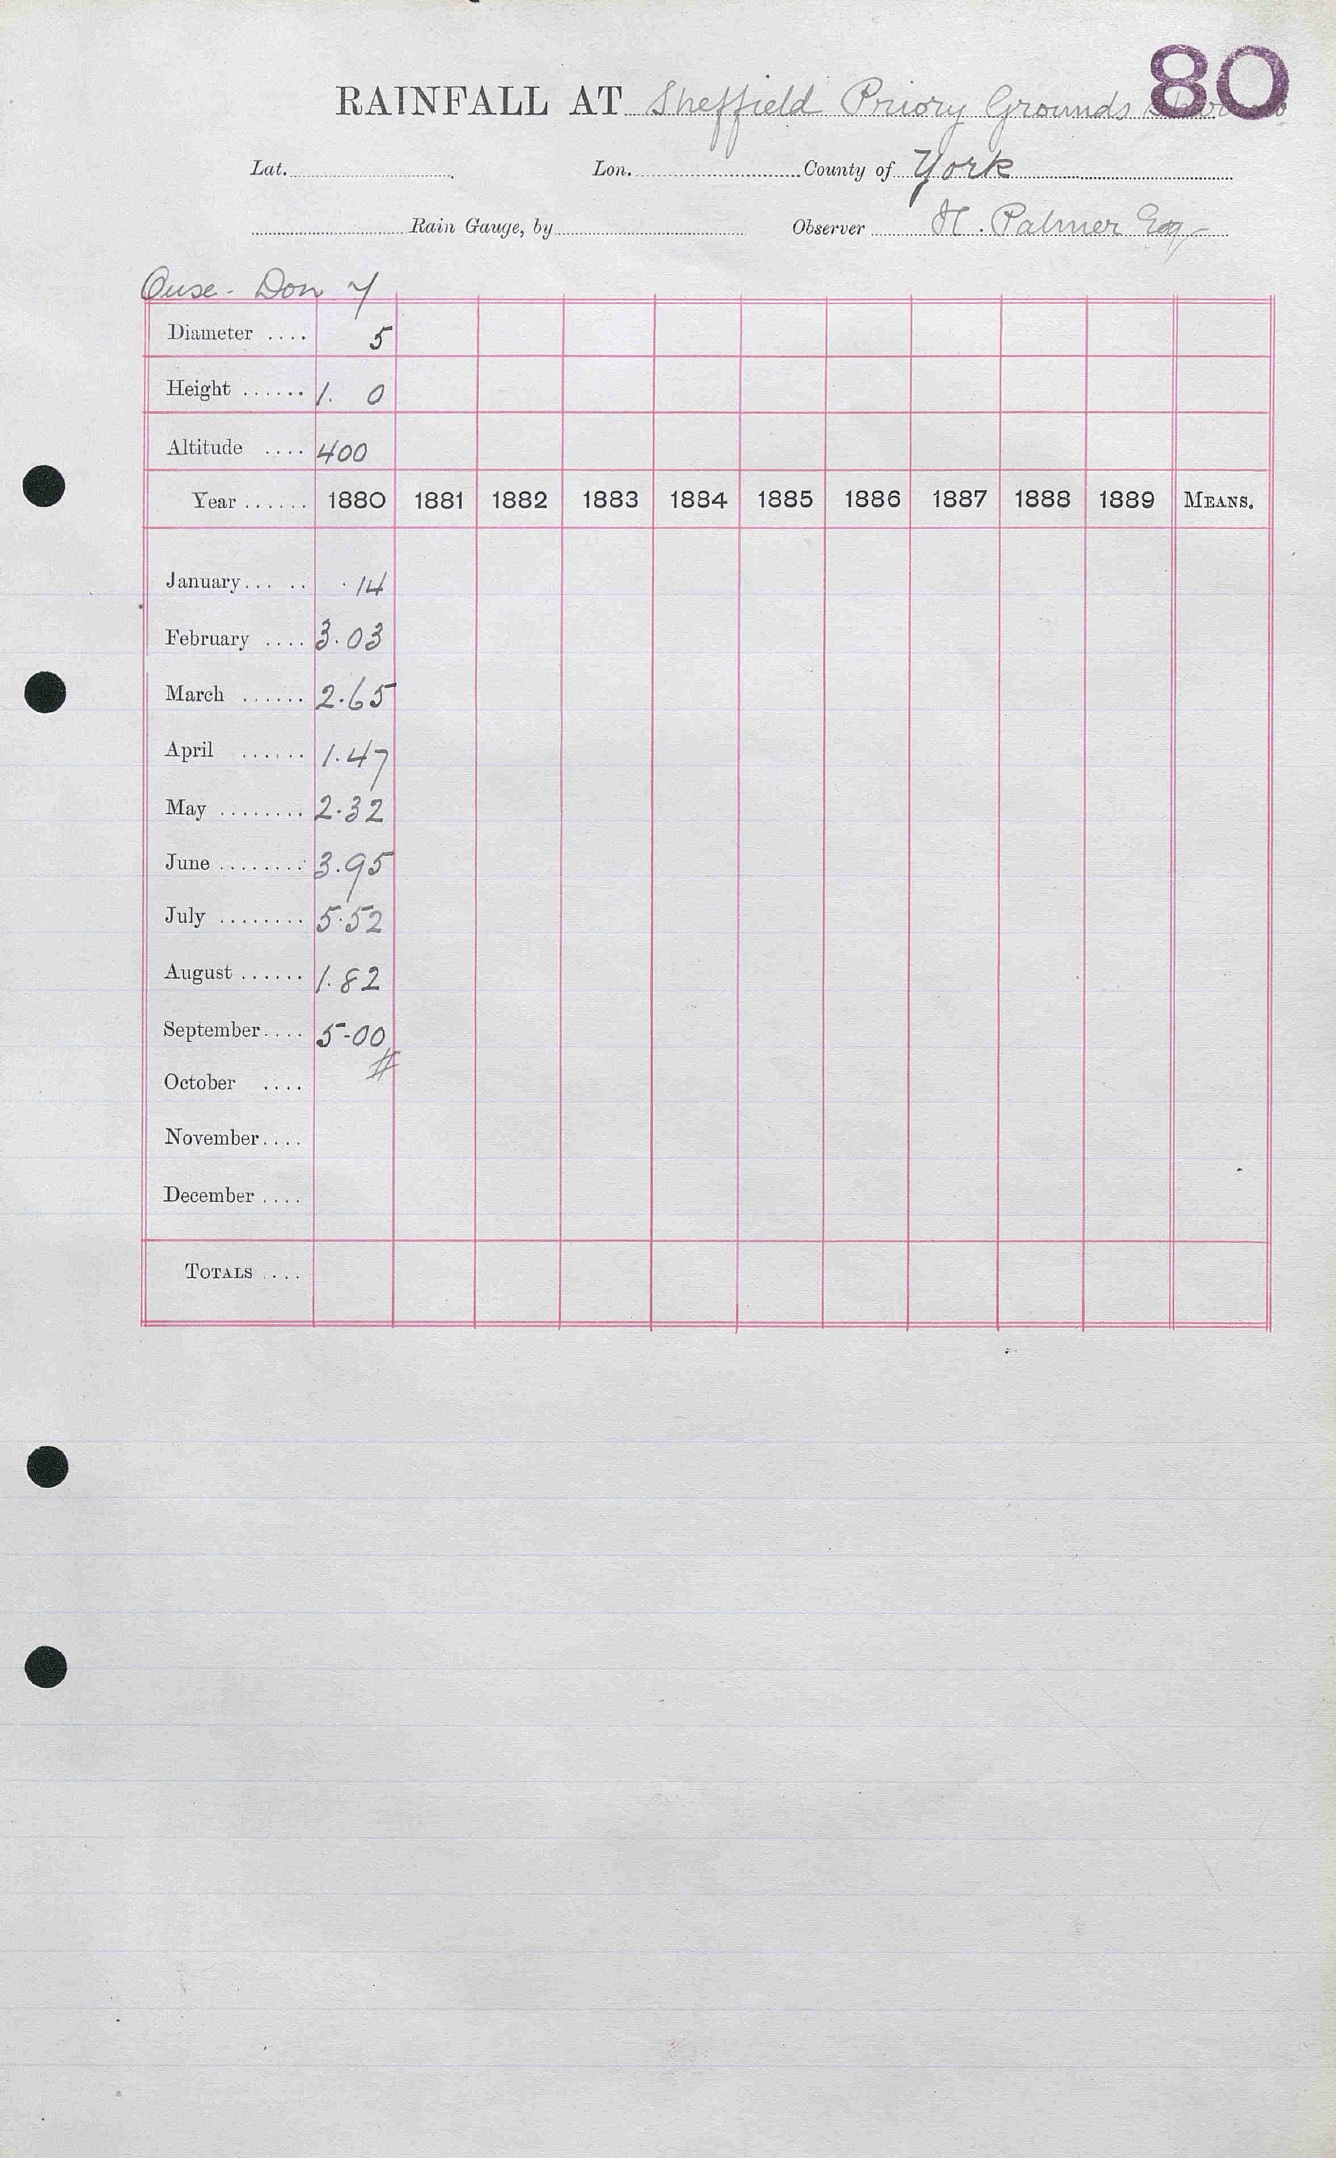 80
RAINFALL AT Sheffield Priory Grounds
Lat. Lon. County of York
Rain Gauge, by Observer H. Palmer Esq
Ouse - Don
Diameter .... 5
Height ...... 1. 0
Altitude .... 400
Year ...... 1880 1881 1882 1883 1884 1885 1886 1887 1888 1889 MEANS.
January ... .. .14
February .... 3.03
March ...... 2.65
April ...... 1.47
May ........ 2.32
June ........ 3.95
July ........ 5.52
August ...... 1.82
September .... 5.00
#
October ....
November ....
December ....
TOTALS ....